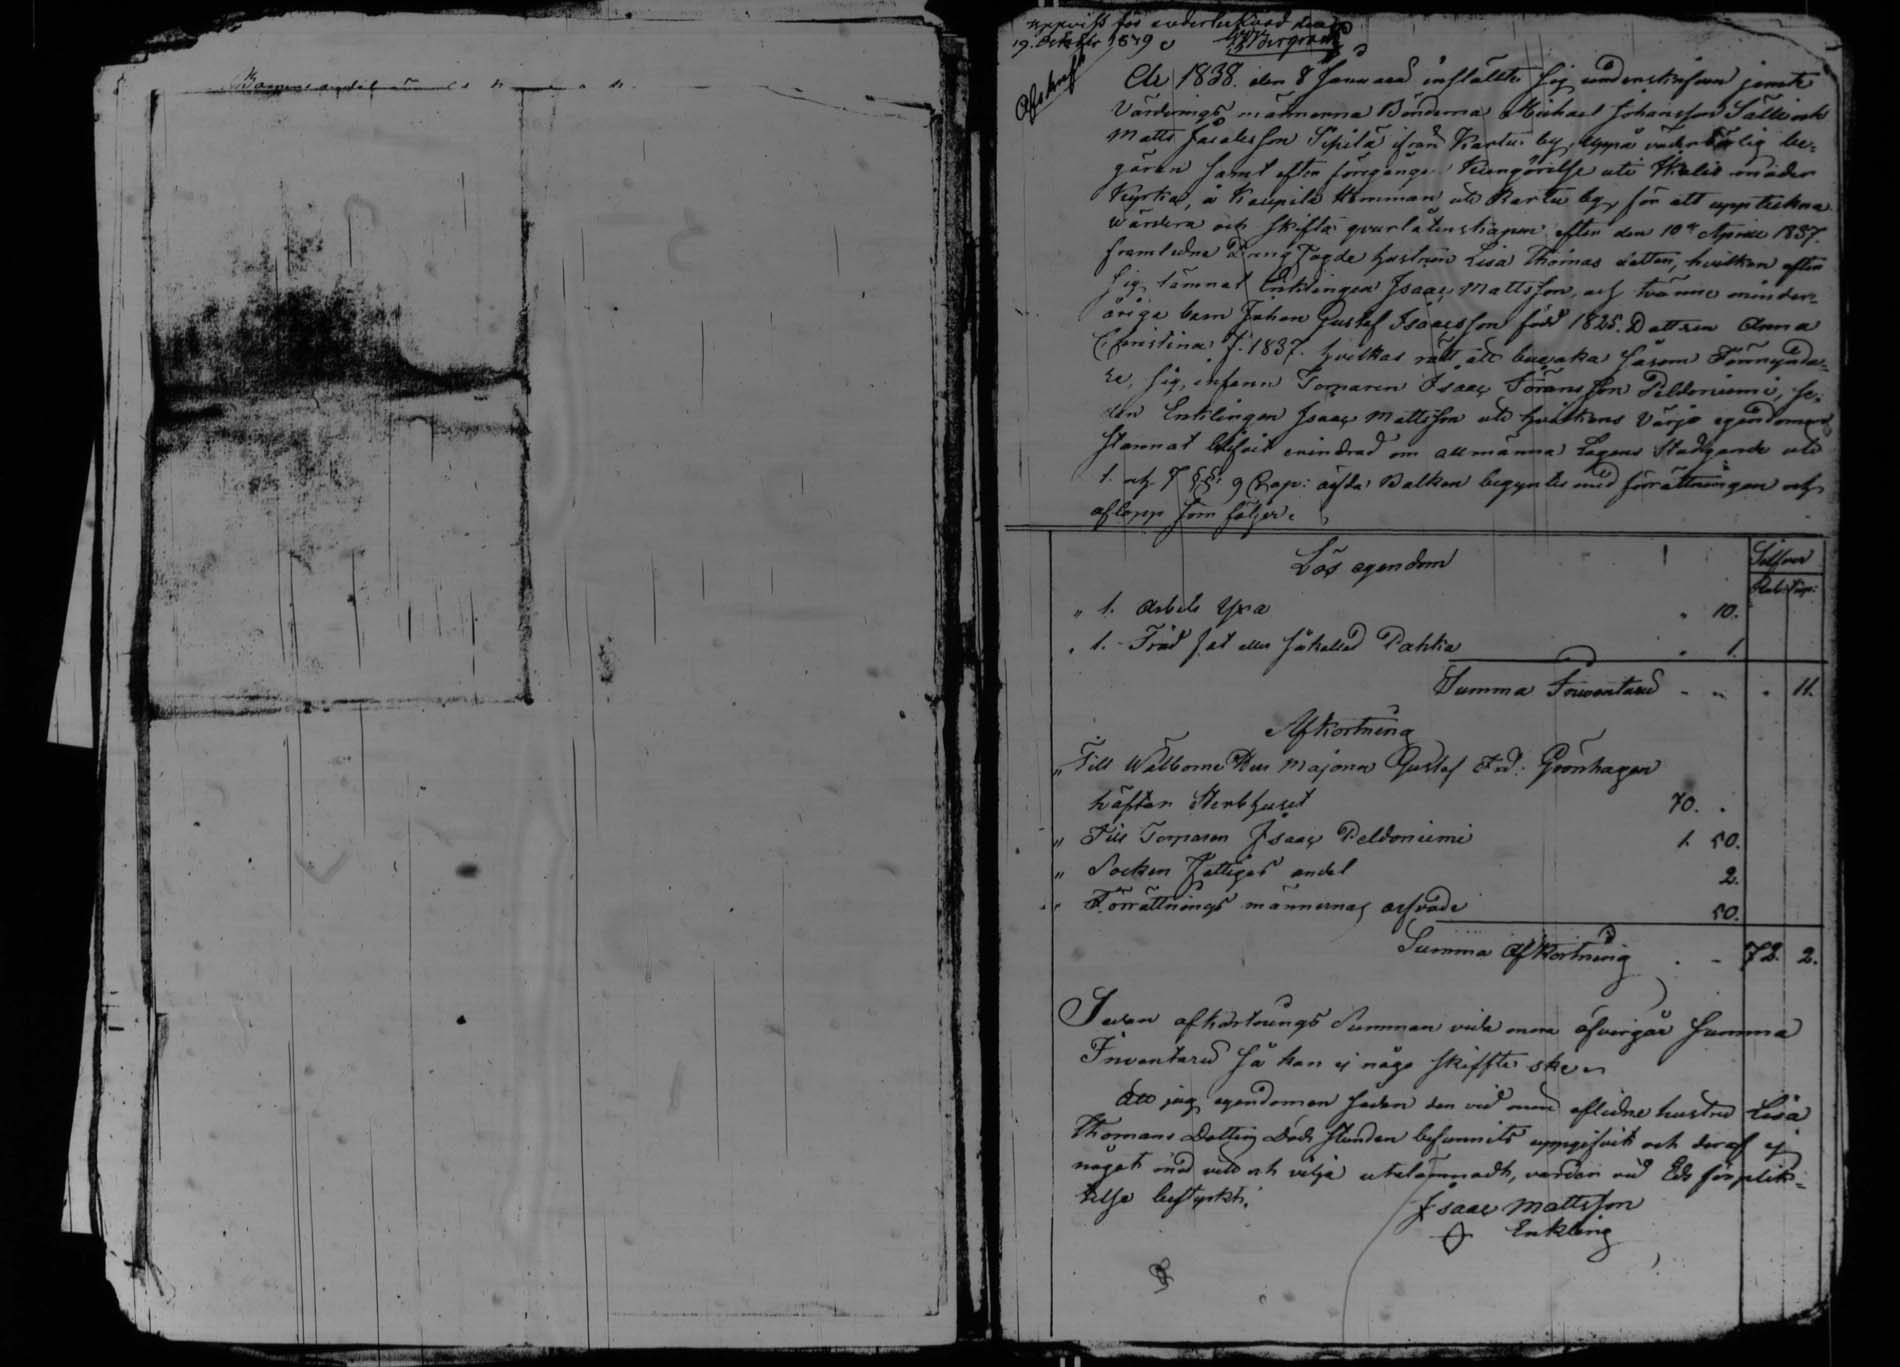 uppvist för undertecknad den
19. Octobr 1839
Afskrift
År 1838. den 8 Januarii instälte sig undertecknad jemte
Värderings männerna Bönderna Michael Johansson Sälli och
Matts Jacobsson Sipilä ifrån Kartu by, uppå vederbörlig be-
gäran samt efter föregången Kungörelse uti Ikalis moder
Kyrka, å Kaupila Hemman uti Kartu by för att uppteckna
värdera och skifta qvarlåtenskapen efter den 10de April 1837.
framledne Dräng Tagde hustrun Lisa Thomas dotter, hvilken efter
sig lämnat Enklingen Isaac Mattsson, och tvänne minder-
åriga barn Johan Gustaf Isaacsson född 1825. Dottren Anna
Christina f. 1837. hvilkas rätt att bevaka såsom Förmynda-
re, sig infann Torparen Isaac Göransson Peldoniemi, se-
dan Enklingen Isaac Mattsson uti hvilkens Värjo egendomen
stannat blifvit erindrad om allmänna Lagens Stadgande uti
1. och 7 §§: 9 Cap: ärfda Balken begyntes med förrättningen och
aflopp som följer.
Silfver
Rub: Kop:
Lös egendom
" 1. Arbets Yxa " 10.
" 1. Träd fat eller så kallad Pahka " 1.
Summa Inventarii - - " 11.
Afkortning
" Till Wälborne Herr Majoren Gustaf Frd: Grönhagen
häftar Sterbhuset 70. .
" Till Torparen Isaac Peldoniemi 1. 50.
" Socken Fattigas andel 2.
" Förrättnings männernas arfvode 50.
Summa Afkortning . - 72. 2.
Sedan afkortnings Summan vida mera öfvergår Summa
Inventarii så kan ej någo skiffte ske
Att jag egendomen sådan den vid min aflidne hustru Lisa
Thomas Dotters Döds stunden befunnits uppgifvit och deraf ej
något med vett och vilja utelämnadt, varder vid Eds förplik-
telse bestyrkt.
Isaac Mattsson
Enkling